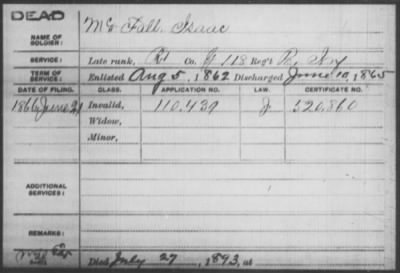 DEAD
NAME OF SOLDIER: McFall, Isaac
SERVICE: Late rank, Co. G 118 Reg't Inf
TERM OF SERVICE: Enlisted Aug 5, 1862 Discharged June 10, 1865
DATE OF FILING. CLASS. APPLICATION NO. LAW. CERTIFICATE NO.
1866 June 21 Invalid, 110.439 J 520,860
Widow,
Minor,
ADDITIONAL SERVICES:
REMARKS:
Died July 27, 1893, at